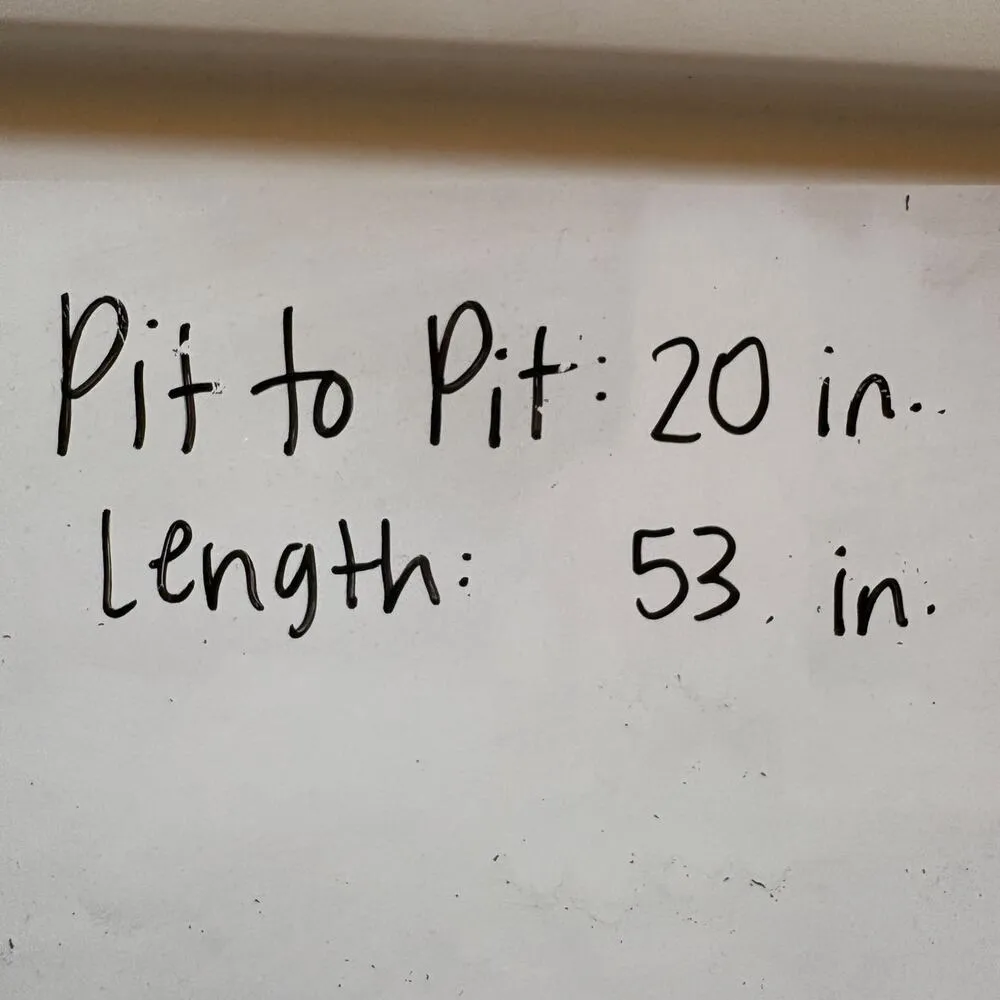 Pit to Pit: 20 in.
Length: 53 in.